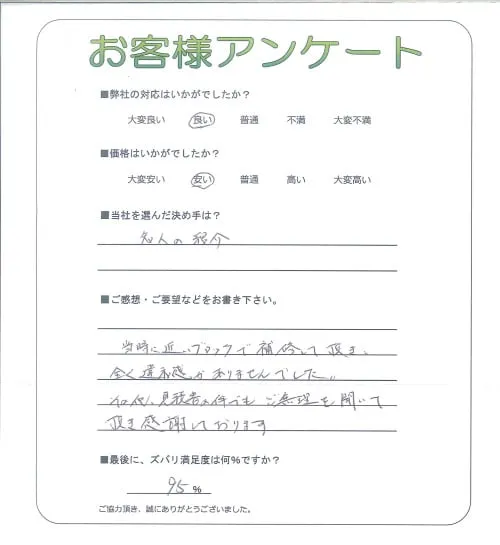 お客様アンケート
■弊社の対応はいかがでしたか?
大変良い 良い 普通 不満 大変不満
■価格はいかがでしたか?
大変安い 安い 普通 高い 大変高い
■当社を選んだ決め手は?
知人の紹介
■ご感想・ご要望などをお書き下さい。
当時に近いブロックで補修して頂き、
全く違和感がありませんでした。
見積書の件でもご無理を聞いて
頂き感謝しております
■最後に、ズバリ満足度は何%ですか?
95 %
ご協力頂き、誠にありがとうございました。